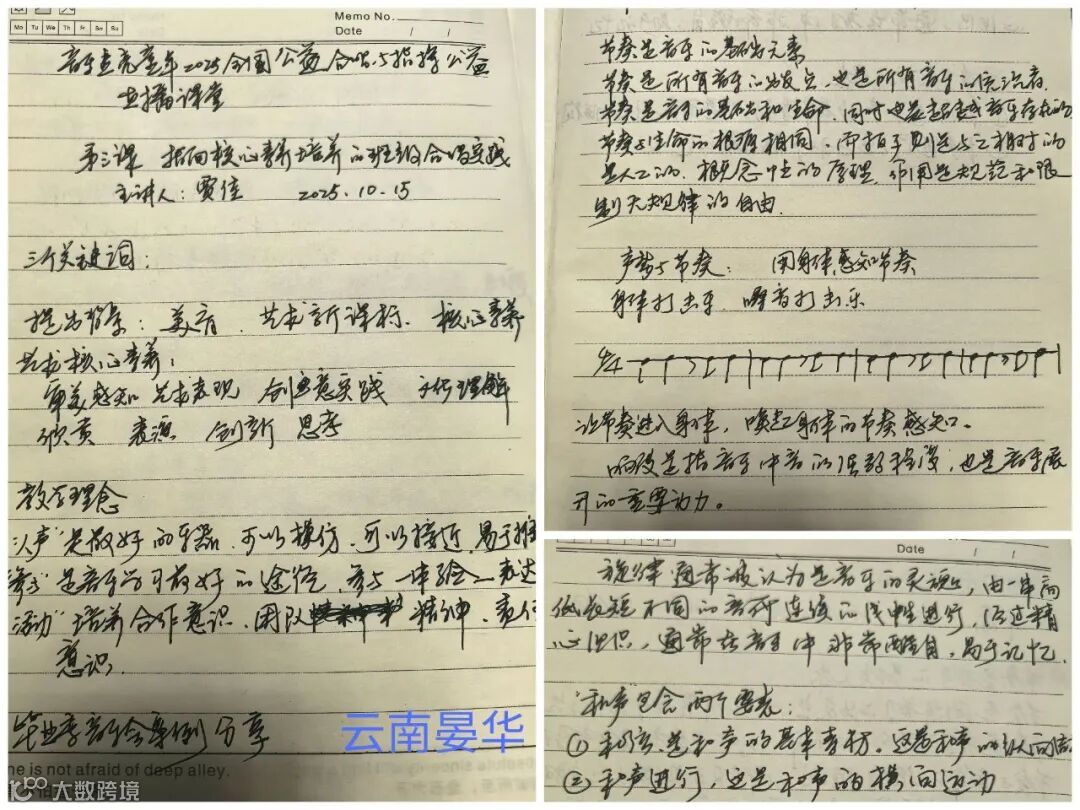 Memo No.
Date / /
Mo Tu We Th Fr Sa Su
音乐点亮童年2025全国公益合唱与指挥公益
直播课堂
第三课 指向核心素养培养的班级合唱实践
主讲人：贾佳 2025.10.15
三个关键词：
提出背景：美育、艺术新课标、核心素养
艺术核心素养：
审美感知 艺术表现 创意实践 文化理解
欣赏 表演 创新 思考
教学理念
"人声"是最好的乐器，可以模仿，可以接近，易于推
"参与"是音乐学习最好的途径，参与—体验—表达
"活动"培养合作意识，团队精神，责任
意识。
毕业季音乐会案例分享
云南晏华
he is not afraid of deep alley.
大数跨境
节奏是音乐的基础元素
节奏是所有音乐的出发点，也是所有音乐的统治者，
节奏是音乐的基础和生命，同时也是超越音乐存在的，
节奏与生命的根源相同，而拍子则是与之相对的
是人工的、概念性的原理，作用是规范和限
制无规律的自由。
声势与节奏：用身体感知节奏
身体打击乐，嗓音打击乐
4/4
让节奏进入身体，唤起身体的节奏感知。
响度是指音乐中音的强弱程度，也是音乐展
开的重要动力。
Date / /
旋律通常被认为是音乐的灵魂，由一串高
低长短不同的音所连续的线性进行，经过精
心组织，通常在音乐中非常醒目，易于记忆。
"和声"包含两个要素：
① 和弦，是和声的基本素材，这是和声的纵向结
② 和声进行，这是和声的横向运动